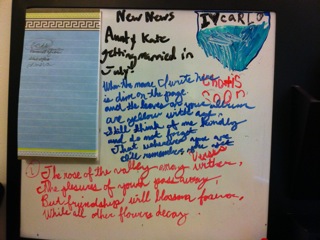 New News
Andy & Kate
getting married in
July!
I ♥ CARLO
When the name I write here
is dim on the page
and the leaves of your album
are yellow with age,
Still think of me kindly
and do not forget
That wherever you are
I'll remember
Verses
① The rose of the valley may wither,
The pleasures of youth pass away,
But friendship will blossom forever,
While all other flowers decay.